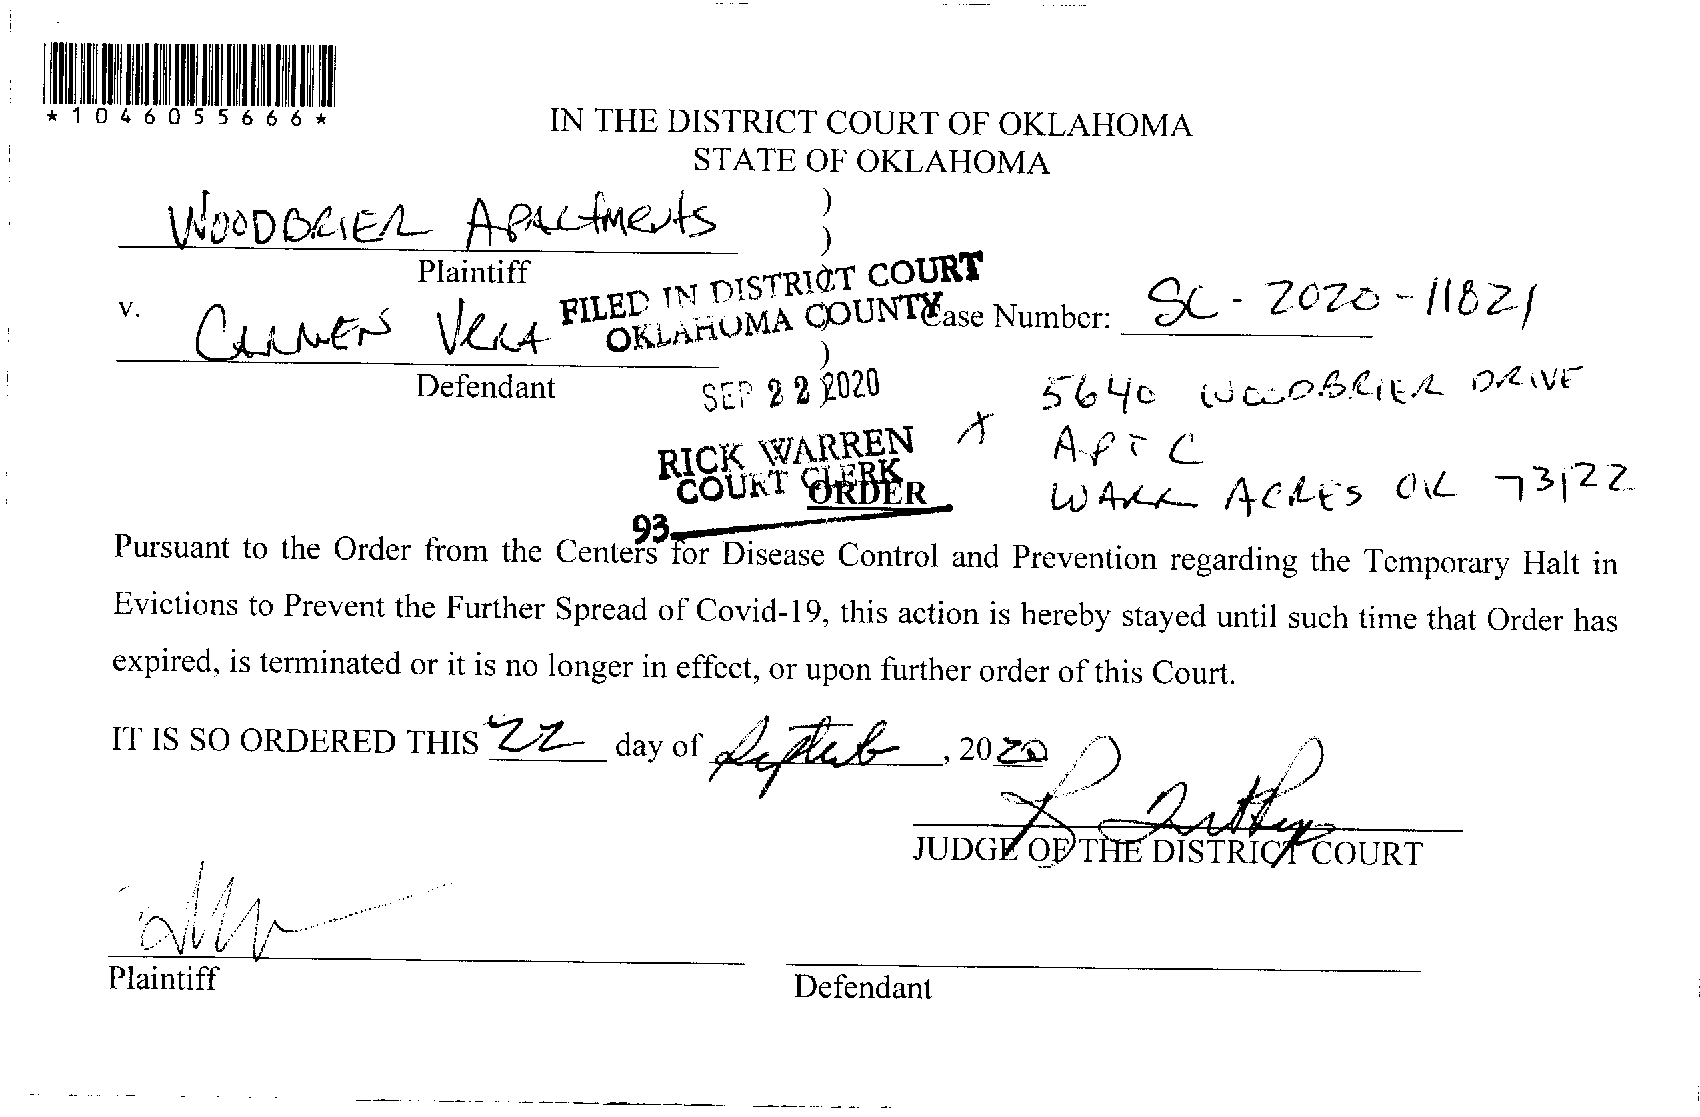 *1046055666*
IN THE DISTRICT COURT OF OKLAHOMA
STATE OF OKLAHOMA
WOODBRIER APARTMENTS )
)
Plaintiff
FILED IN DISTRICT COURT
OKLAHOMA COUNTY
v.
CARMEN VERA
Case Number: SC-2020-11821
)
Defendant
SEP 22 2020
5640 WOODBRIER DRIVE
APT C
WARR ACRES OK 73122
RICK WARREN
COURT CLERK
ORDER
93
Pursuant to the Order from the Centers for Disease Control and Prevention regarding the Temporary Halt in
Evictions to Prevent the Further Spread of Covid-19, this action is hereby stayed until such time that Order has
expired, is terminated or it is no longer in effect, or upon further order of this Court.
IT IS SO ORDERED THIS 22 day of Septemb, 2020
JUDGE OF THE DISTRICT COURT
Plaintiff
Defendant